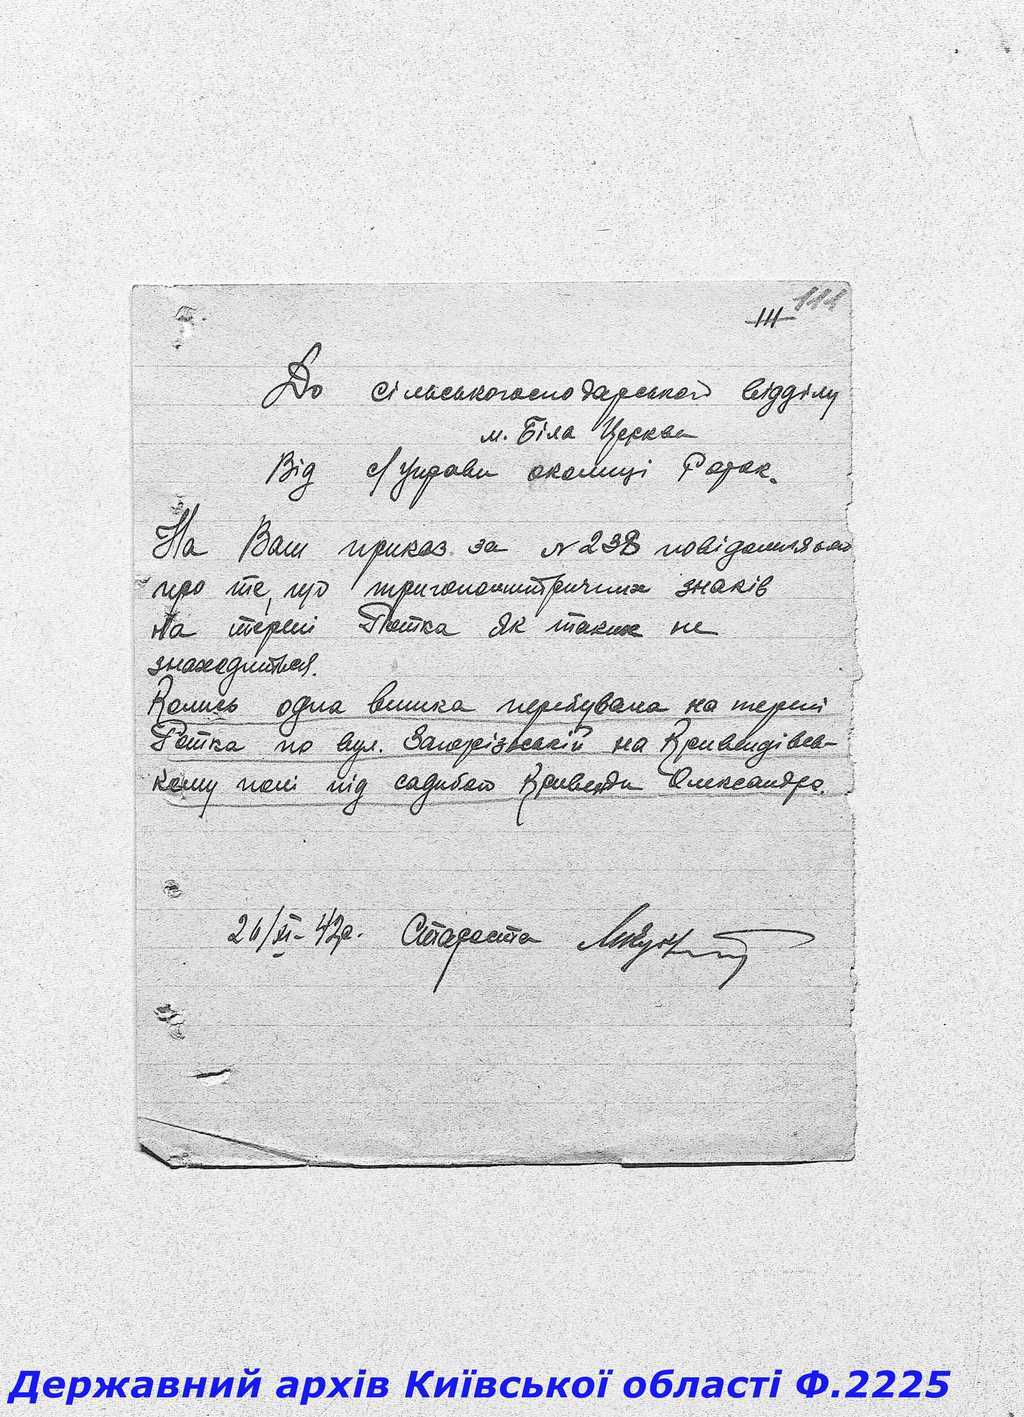 111
111
До сільськогосподарської відділу
м. Біла Церква
Від с/управи околиці Роток.
На Ваш приказ за №238 повідомляємо
про те, що тригонометричних знаків
на терені Ротка як таких не
знаходиться.
Колись одна вишка перебувала на терені
Ротка по вул. Запорізській на Кривендівсь-
кому полі під садибою Кривенди Олександра.
26/XI-42р. Староста
Державний архів Київської області Ф.2225